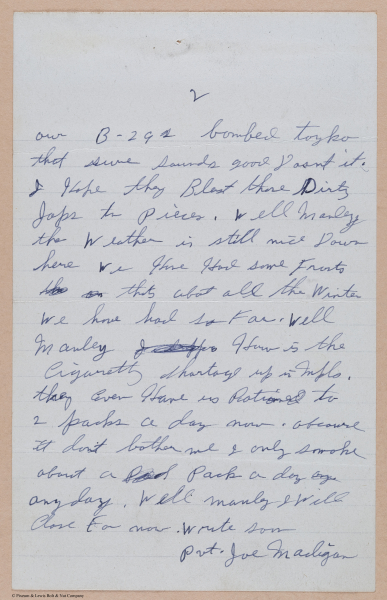 2
our B-29s bombed toyko
that sure sounds good Dosnt it.
I Hope they Blast those Dirty
Japs to Pieces. Well Manley
the Weather is still nice Down
here We Have Had some Frosts
thats about all the Winter
We have had so Far. Well
Manley How is the
Cigarette shortage up in Mpls.
they Even Have us Rationed to
2 packs a day now. ofcourse
It dont bother me I only smoke
about a Pack a day
anyday. Well manley I Will
Close For now. Write soon
Pvt. Joe Madigan
© Profiles in History & Lewis Bolt & Nut Company